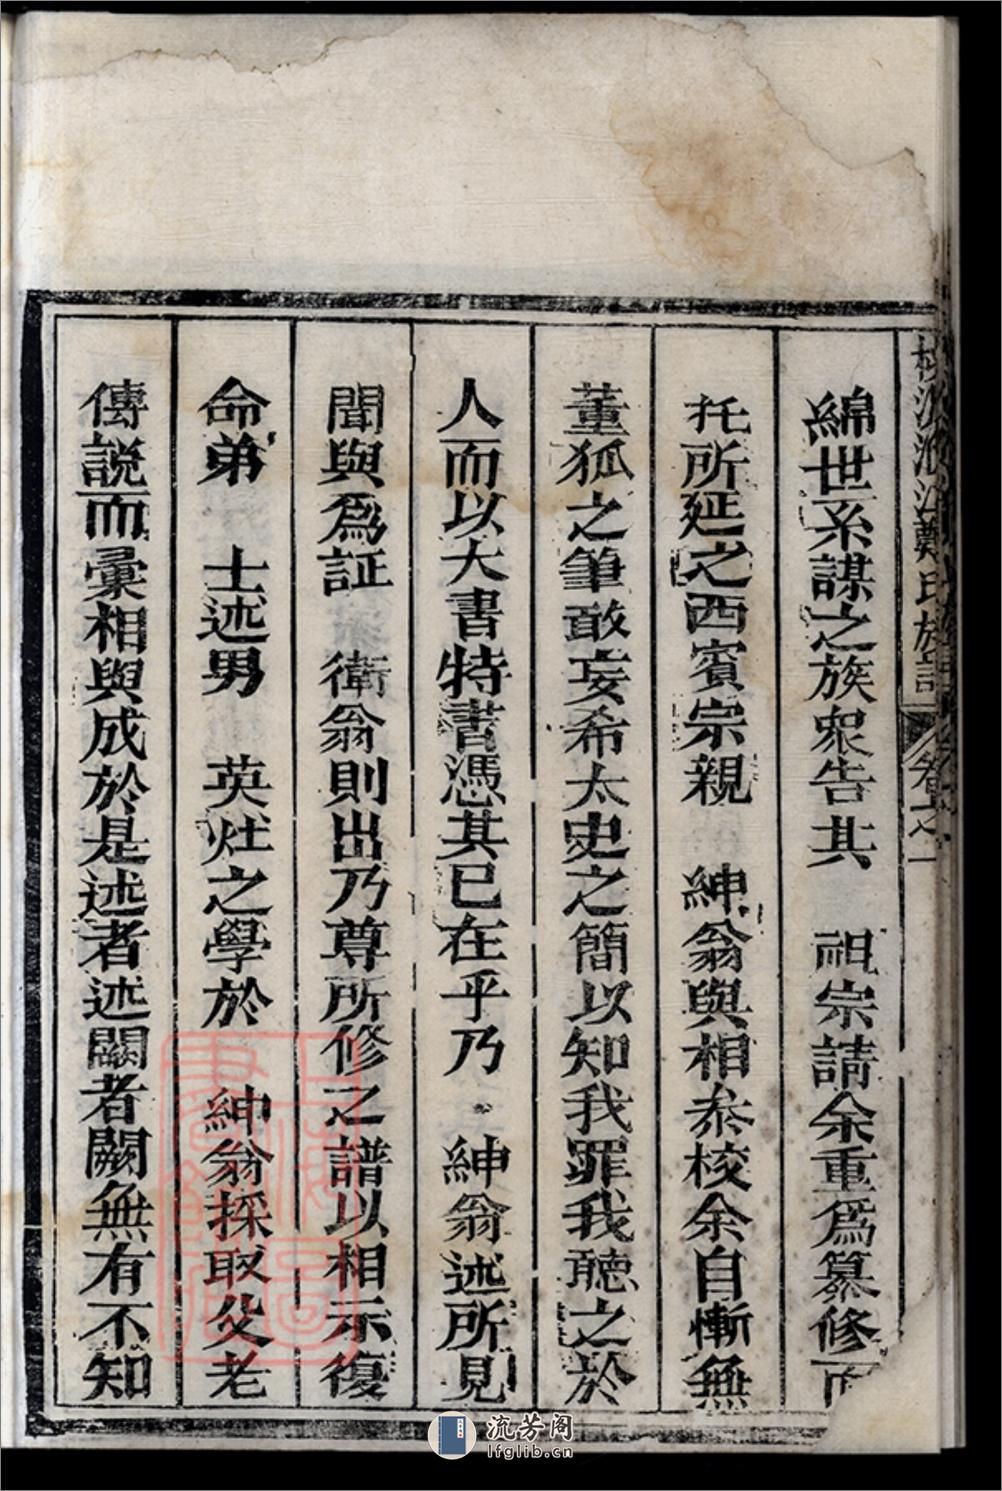 綿世系謀之族衆告其　祖宗請余重爲纂修而
托所延之西賓宗親　紳翁與相叅校余自慚無
董狐之筆敢妄希太史之簡以知我罪我聽之於
人而以大書特書憑其已在乎乃　紳翁述所見
聞與爲証　衛翁則出乃尊所修之譜以相示復
命弟　士述男　英灶之學於　紳翁採取父老
傳説而彙相與成於是述者述闕者闕無有不知
鄭氏族譜
卷之一
上海圖書館
流芳阁
lfglib.cn